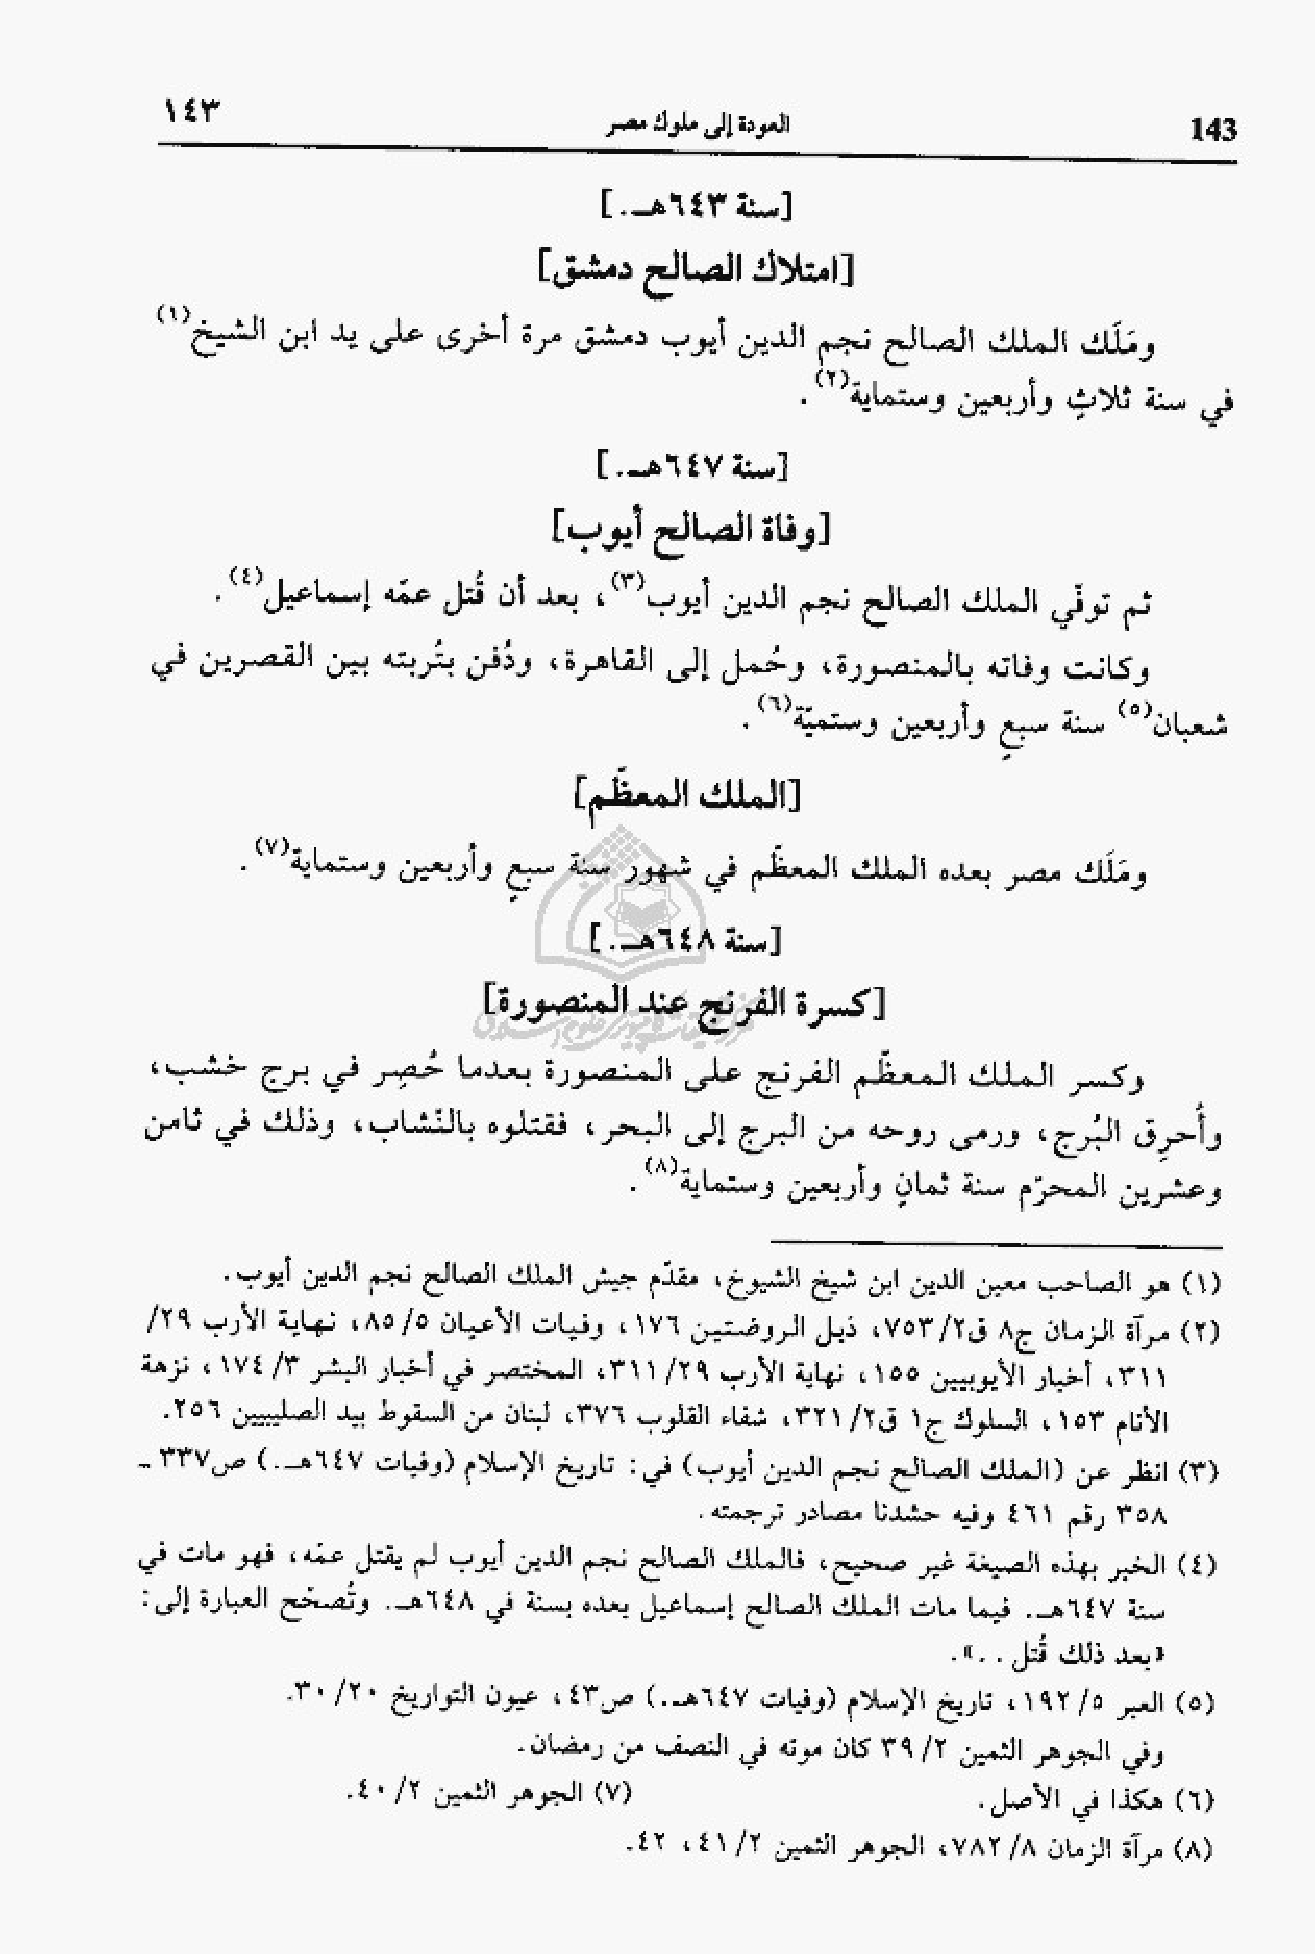 143 العودة إلى ملوك مصر ١٤٣
[سنة ٦٤٣هـ.]
[امتلاك الصالح دمشق]
ومَلَك الملك الصالح نجم الدين أيوب دمشق مرة أخرى على يد ابن الشيخ(١)
في سنة ثلاثٍ وأربعين وستماية(٢).
[سنة ٦٤٧هـ.]
[وفاة الصالح أيوب]
ثم توفّي الملك الصالح نجم الدين أيوب(٣)، بعد أن قُتل عمّه إسماعيل(٤).
وكانت وفاته بالمنصورة، وحُمل إلى القاهرة، ودُفن بتُربته بين القصرين في
شعبان(٥) سنة سبعٍ وأربعين وستميّة(٦).
[الملك المعظّم]
ومَلَك مصر بعده الملك المعظّم في شهور سنة سبعٍ وأربعين وستماية(٧).
[سنة ٦٤٨هـ.]
[كسرة الفرنج عند المنصورة]
وكسر الملك المعظّم الفرنج على المنصورة بعدما حُصِر في برج خشب،
وأُحرِق البُرج، ورمى روحه من البرج إلى البحر، فقتلوه بالنّشاب، وذلك في ثامن
وعشرين المحرّم سنة ثمانٍ وأربعين وستماية(٨).
(١) هو الصاحب معين الدين ابن شيخ الشيوخ، مقدّم جيش الملك الصالح نجم الدين أيوب.
(٢) مرآة الزمان ج٨ ق٧٥٣/٢، ذيل الروضتين ١٧٦، وفيات الأعيان ٨٥/٥، نهاية الأرب ٢٩/
٣١١، أخبار الأيوبيين ١٥٥، نهاية الأرب ٣١١/٢٩، المختصر في أخبار البشر ١٧٤/٣، نزهة
الأنام ١٥٣، السلوك ج١ ق٣٢١/٢، شفاء القلوب ٣٧٦، لبنان من السقوط بيد الصليبيين ٢٥٦.
(٣) انظر عن (الملك الصالح نجم الدين أيوب) في: تاريخ الإسلام (وفيات ٦٤٧هـ.) ص٣٣٧ ـ
٣٥٨ رقم ٤٦١ وفيه حشدنا مصادر ترجمته.
(٤) الخبر بهذه الصيغة غير صحيح، فالملك الصالح نجم الدين أيوب لم يقتل عمّه، فهو مات في
سنة ٦٤٧هـ. فيما مات الملك الصالح إسماعيل بعده بسنة في ٦٤٨هـ. وتُصحّح العبارة إلى:
«بعد ذلك قُتل . . .».
(٥) العبر ١٩٢/٥، تاريخ الإسلام (وفيات ٦٤٧هـ.) ص٤٣، عيون التواريخ ٣٠/٢٠.
وفي الجوهر الثمين ٣٩/٢ كان موته في النصف من رمضان.
(٦) هكذا في الأصل. (٧) الجوهر الثمين ٤٠/٢.
(٨) مرآة الزمان ٧٨٢/٨، الجوهر الثمين ٤١/٢، ٤٢.